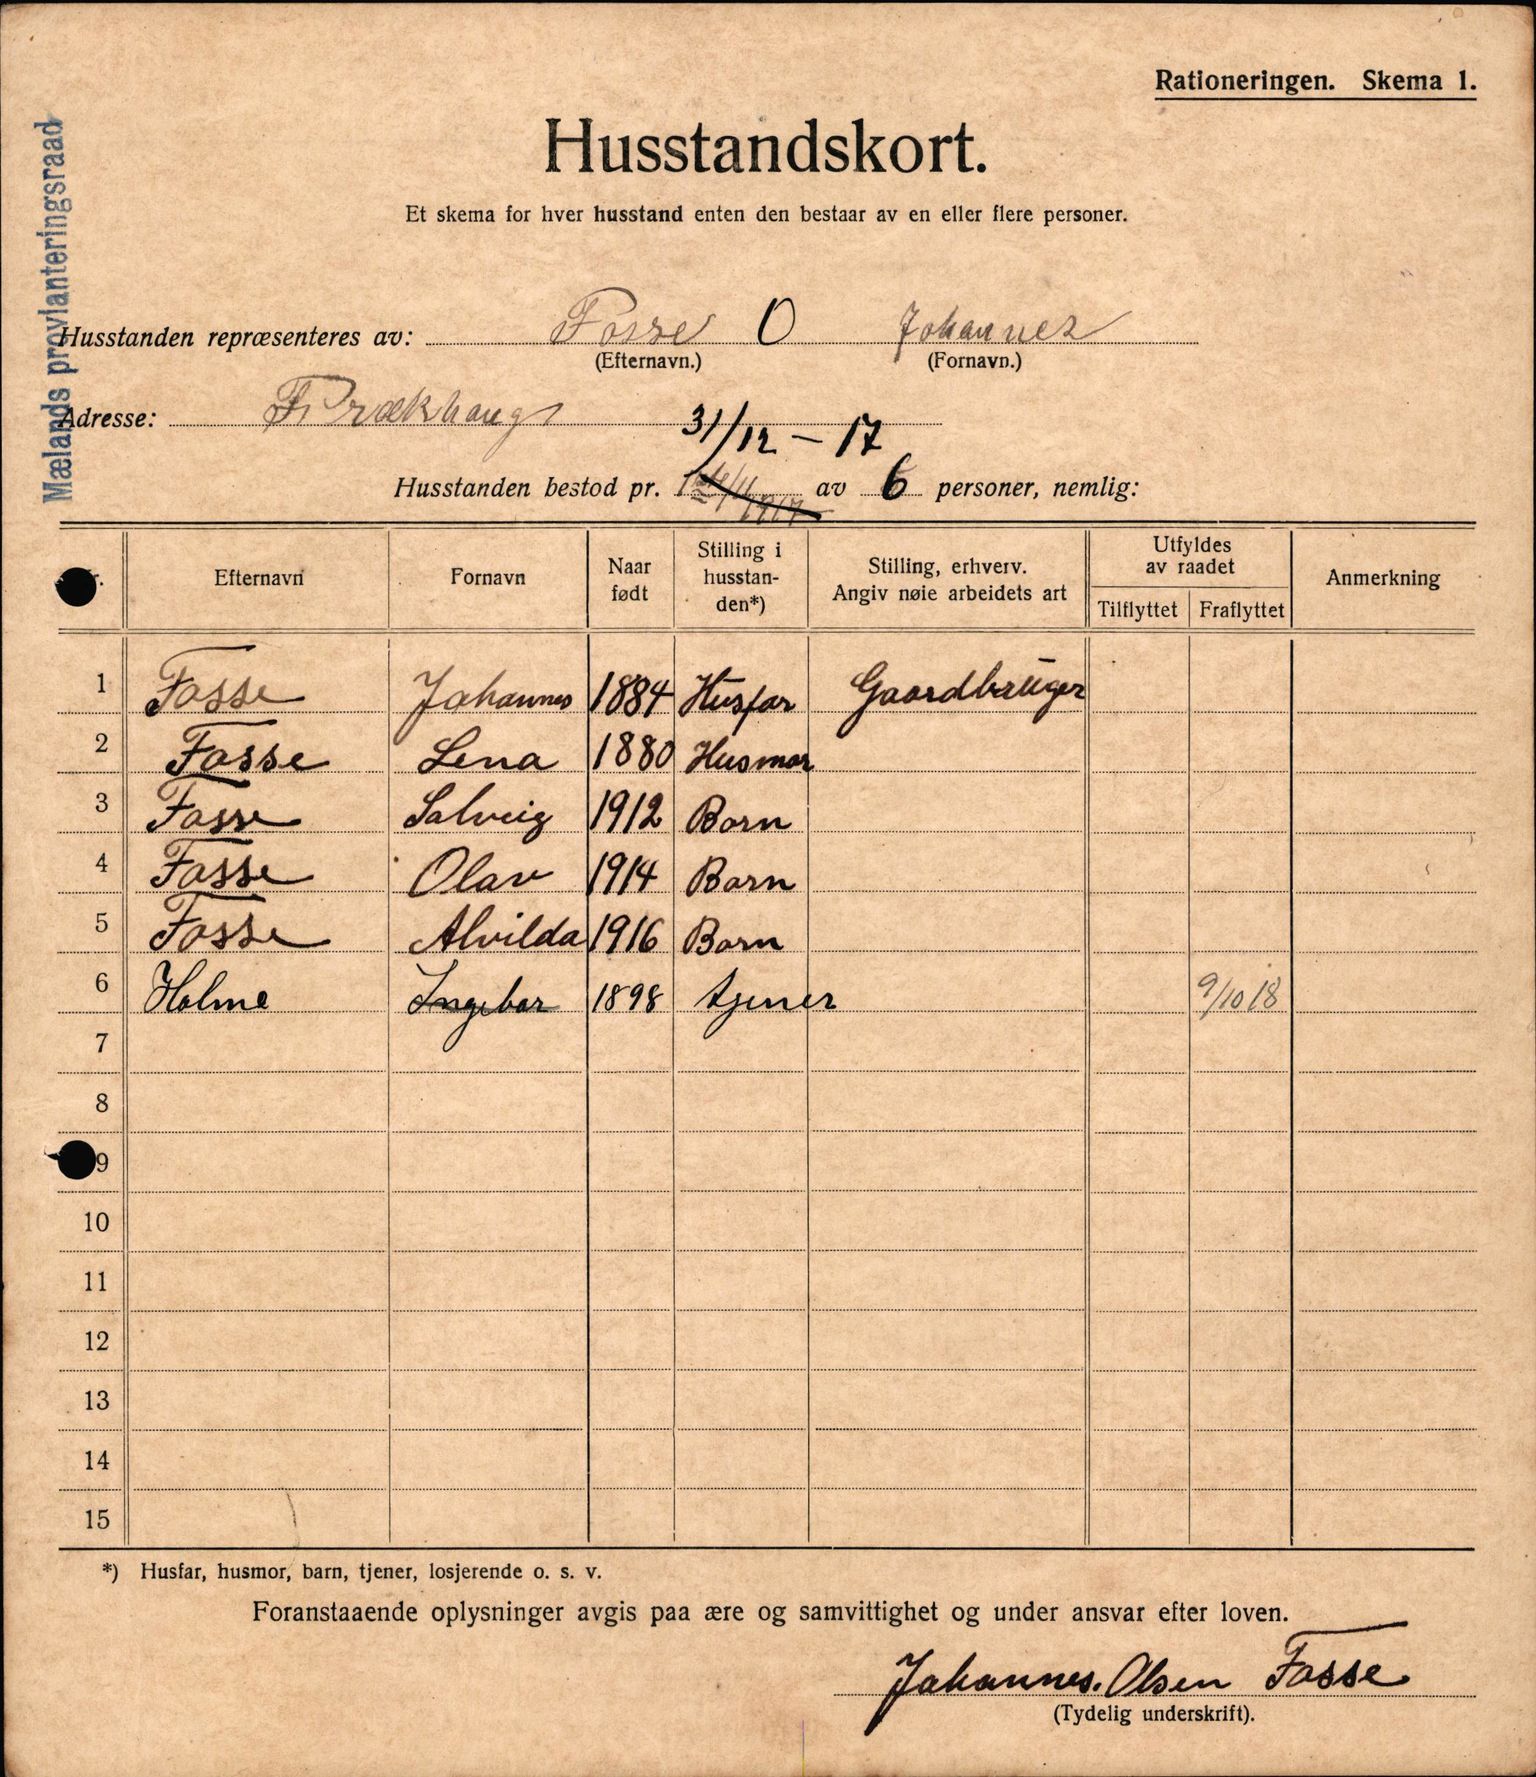 Rationeringen. Skema 1.
Mælands provianteringsraad
Husstandskort.
Et skema for hver husstand enten den bestaar av en eller flere personer.
Husstanden repræsenteres av: Fosse O Johannes
(Efternavn.) (Fornavn.)
Adresse:
31/12 - 17
Husstanden bestod pr. av 6 personer, nemlig:
Efternavn Fornavn Naar født Stilling i husstan-den*) Stilling, erhverv. Angiv nøie arbeidets art Utfyldes av raadet Tilflyttet Fraflyttet Anmerkning
1 Fosse Johannes 1884 Husfar Gaardbruger
2 Fosse Lena 1880 Husmor
3 Fosse Solveig 1912 Barn
4 Fosse Olav 1914 Barn
5 Fosse Alvilda 1916 Barn
6 Holme Ingebor 1898 tjener 9/10 18
7
8
9
10
11
12
13
14
15
*) Husfar, husmor, barn, tjener, losjerende o. s. v.
Foranstaaende oplysninger avgis paa ære og samvittighet og under ansvar efter loven.
Johannes. Olsen Fosse
(Tydelig underskrift).